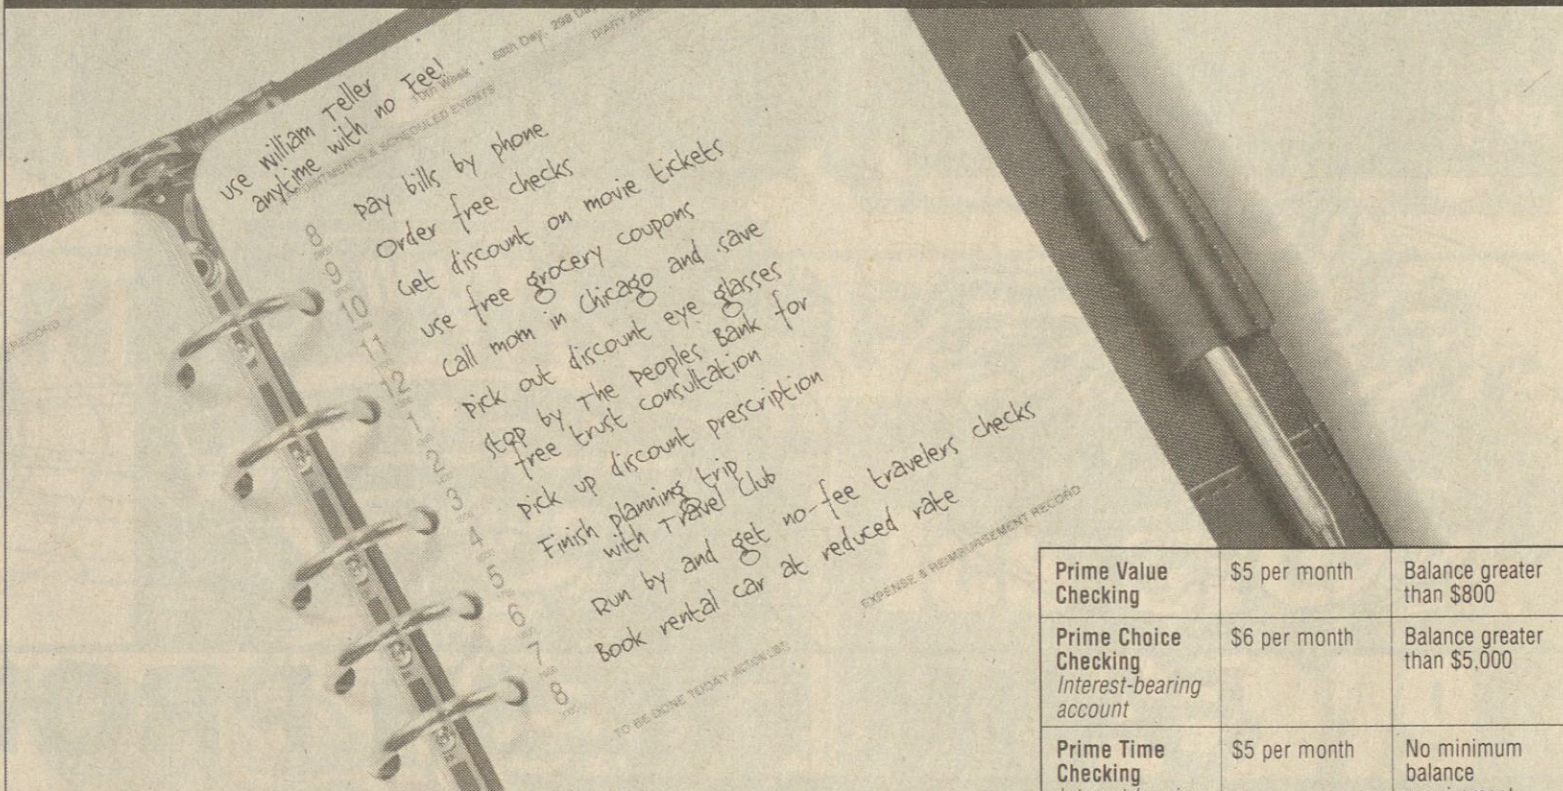 use william Teller
anytime with no Fee!
10th Week • 68th Day, 298 Day
DIARY AN
APPOINTMENTS & SCHEDULED EVENTS
RECORD
8
9
10
11
12
1
2
3
4
5
6
7
8
pay bills by phone
Order free checks
Get discount on movie tickets
use free grocery coupons
Call mom in Chicago and save
pick out discount eye glasses
stop by The Peoples Bank for
free trust consultation
pick up discount prescription
Finish planning trip
with Travel Club
Run by and get no-fee travelers checks
Book rental car at reduced rate
EXPENSE & REIMBURSEMENT RECORD
TO BE DONE TODAY (ACTION LIST)
Prime Value
Checking
$5 per month
Balance greater
than $800
Prime Choice
Checking
Interest-bearing
account
$6 per month
Balance greater
than $5,000
Prime Time
Checking
$5 per month
No minimum
balance